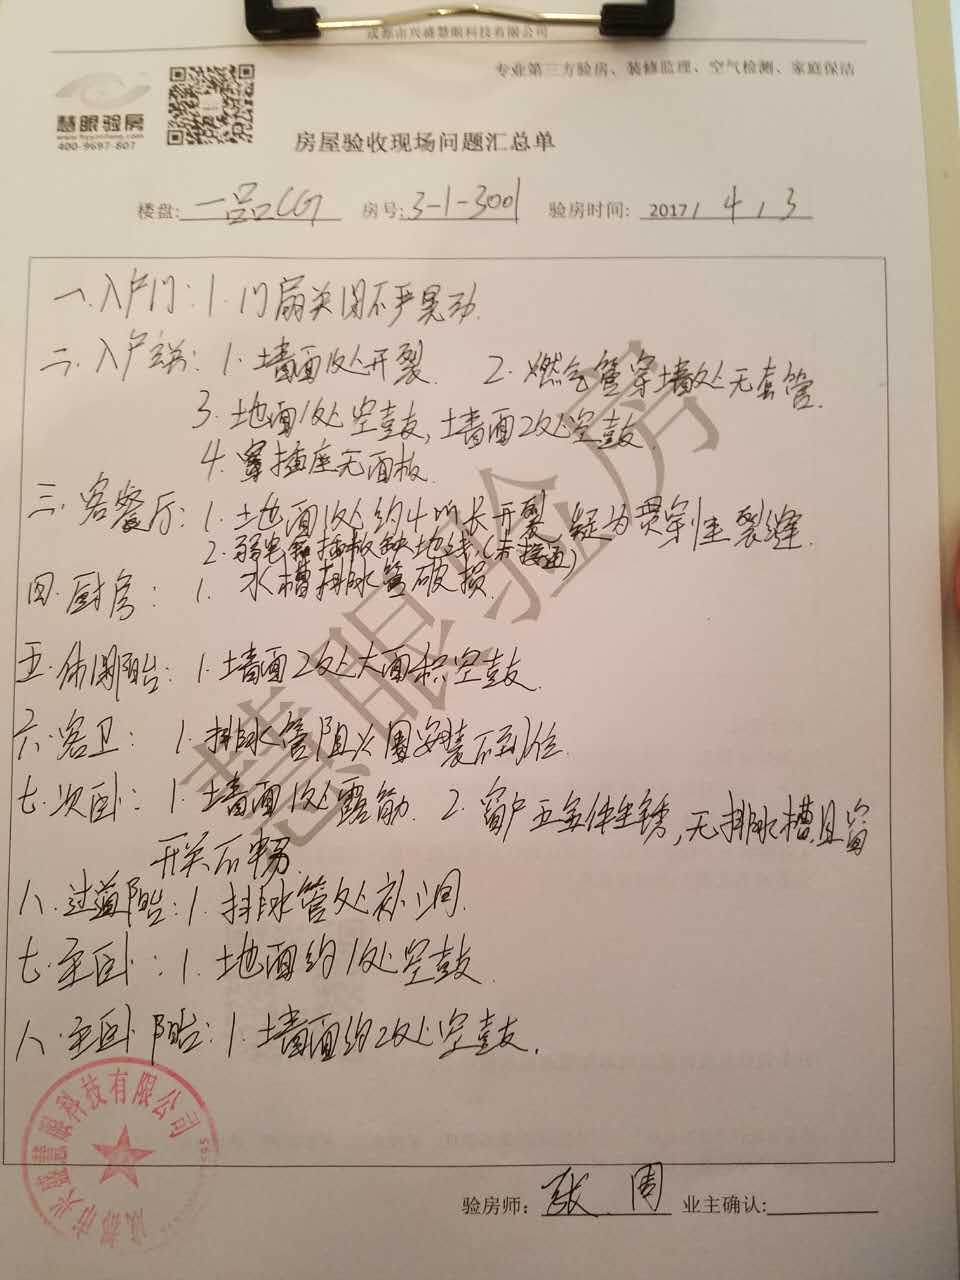 成都市兴盛慧眼科技有限公司
专业第三方验房、装修监理、空气检测、家庭保洁
慧眼验房
400-9697-807
房屋验收现场问题汇总单
楼盘: 一品CG 房号: 3-1-3001 验房时间: 2017 / 4 / 3
一.入户门: 1. 门扇关闭不严晃动.
二.入户玄关: 1. 墙面1处开裂. 2. 燃气管穿墙处无套管.
3. 地面1处空鼓, 墙面2处空鼓
4. 插座无面板.
三.客餐厅: 1. 土地面1处约4m长开裂 疑为贯穿性裂缝.
2. 弱电箱插板缺地线,(未接通)
四.厨房: 1. 水槽排水管破损.
五.休闲阳台: 1. 墙面2处大面积空鼓.
六.客卫: 1. 排水管阻火圈安装不到位.
七.次卧: 1. 墙面1处露筋. 2. 窗户五金件生锈,无排水槽,且窗
开关不畅.
八.过道阳台: 1. 排水管处补洞.
七.主卧: 1. 地面约1处空鼓.
八.主卧阳台: 1. 墙面约2处空鼓.
慧眼验房
成都市兴盛慧眼科技有限公司
验房师: 张周 业主确认: